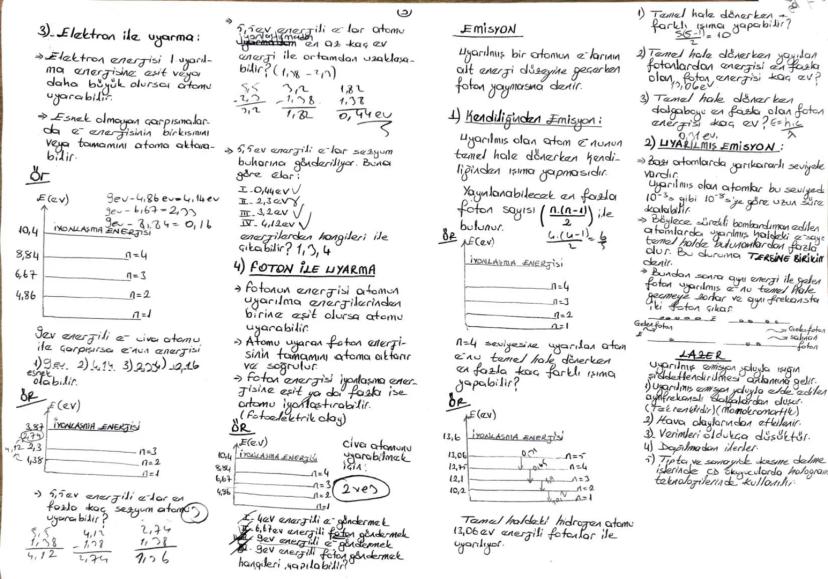 3) Elektron ile uyarma:
→ Elektron enerjisi 1 uyarıl-
ma enerjisine eşit veya
daha büyük olursa atomu
uyarabilir.
→ Esnek olmayan çarpışmalar-
da e⁻ enerjisinin bir kısmını
veya tamamını atoma aktara-
bilir.
ÖR
E(ev)
9ev-4,86ev=4,14ev
9ev-6,67=2,33
9ev-8,84=0,16
10,4 İYONLAŞMA ENERJİSİ
8,84 n=4
6,67 n=3
4,86 n=2
n=1
9ev enerjili e⁻ civa atomu
ile çarpışırsa e⁻nun enerjisi
1) 9ev 2) 4,14 3) 2,33
esnek
olabilir.
ÖR
E(ev)
3,87 İYONLAŞMA ENERJİSİ
2,3 n=3
1,38 n=2
n=1
→ 5,5ev enerjili e⁻lar en
fazla kaç sezyum atomu
uyarabilir?
5,5 4,12 2,74
1,38 1,38 1,38
4,12 2,74
→ 5,5ev enerjili e⁻lar atomu
en az kaç ev
enerji ile ortamdan uzaklaşa-
bilir? (1,38 - 2,3)
5,5 3,2 1,82
-2,3 -1,38 1,38
3,2 1,82 0,44ev
→ 5,5ev enerjili e⁻lar sezyum
buharına gönderiliyor. Buna
göre e⁻lar:
I- 0,44ev
II- 2,3ev
III- 3,2ev
IV- 4,12ev
enerjilerden hangileri ile
çıkabilir? 1,3,4
4) FOTON İLE UYARMA
→ Fotonun enerjisi atomun
uyarılma enerjilerinden
birine eşit olursa atomu
uyarabilir.
→ Atomu uyaran foton enerji-
sinin tamamını atoma aktarır
ve soğrulur.
→ Foton enerjisi iyonlaşma ener-
jisine eşit ya da fazla ise
atomu iyonlaştırabilir.
(Fotoelektrik olay)
ÖR
E(ev)
10,4 İYONLAŞMA ENERJİSİ
8,84 n=4
6,67 n=3
4,86 n=2
n=1
civa atomunu
uyarabilmek
için:
2 ve 3
I- 4ev enerjili e⁻ göndermek
II- 6,67ev enerjili foton göndermek
9ev enerjili e⁻ göndermek
9ev enerjili foton göndermek
hangileri yapılabilir?
EMİSYON
Uyarılmış bir atomun e⁻larının
alt enerji düzeyine geçerken
foton yaymasına denir.
1) Kendiliğinden Emisyon:
Uyarılmış olan atom e⁻nunun
temel hale dönerken kendi-
liğinden ışıma yapmasıdır.
Yayınlanabilecek en fazla
foton sayısı (n.(n-1)/2) ile
bulunur. 4.(4-1)/2 = 6
ÖR
E(ev)
İYONLAŞMA ENERJİSİ
n=4
n=3
n=2
n=1
n=4 seviyesine uyarılan atom
e⁻nu temel hale dönerken
en fazla kaç farklı ışıma
yapabilir?
ÖR
E(ev)
13,6 İYONLAŞMA ENERJİSİ
13,06 n=5
12,75 n=4
12,1 n=3
10,2 n=2
n=1
Temel haldeki hidrojen atomu
13,06 ev enerjili fotonlar ile
uyarılıyor.
1) Temel hale dönerken
farklı ışıma yapabilir?
5(5-1)/2 = 10
2) Temel hale dönerken yayılan
fotonlardan enerjisi en fazla
olan foton enerjisi kaç ev?
13,06ev
3) Temel hale dönerken
dalgaboyu en fazla olan foton
enerjisi kaç ev? E=h.c/λ
0,31ev.
2) UYARILMIŞ EMİSYON:
→ Bazı atomlarda yarıkararlı seviyeler
vardır.
Uyarılmış olan atomlar bu seviyede
10⁻³s gibi 10⁻⁸s'ye göre uzun süre
kalabilir.
→ Böylece sürekli bombardıman edilen
atomlarda uyarılmış haldeki e⁻ sayısı
temel halde bulunanlardan fazla
olur. Bu duruma TERSİNE BİRİKİM
denir.
→ Bundan sonra aynı enerji ile gelen
foton uyarılmış e⁻nu temel hale
geçmeye zorlar ve aynı frekansta
iki foton çıkar.
Gelen foton
Gelen foton
salınan
foton
LAZER
Uyarılmış emisyon yoluyla ışığın
şiddetlendirilmesi anlamına gelir.
1) Uyarılmış emisyon yoluyla elde edilen
aynı frekanslı dalgalardan oluşur.
(Tek renklidir) (Monokromatik)
2) Hava olaylarından etkilenir.
3) Verimleri oldukça düşüktür.
4) Dağılmadan ilerler.
5) Tıpta ve sanayide kesme delme
işlerinde CD okuyucularda hologram
teknolojilerinde kullanılır.